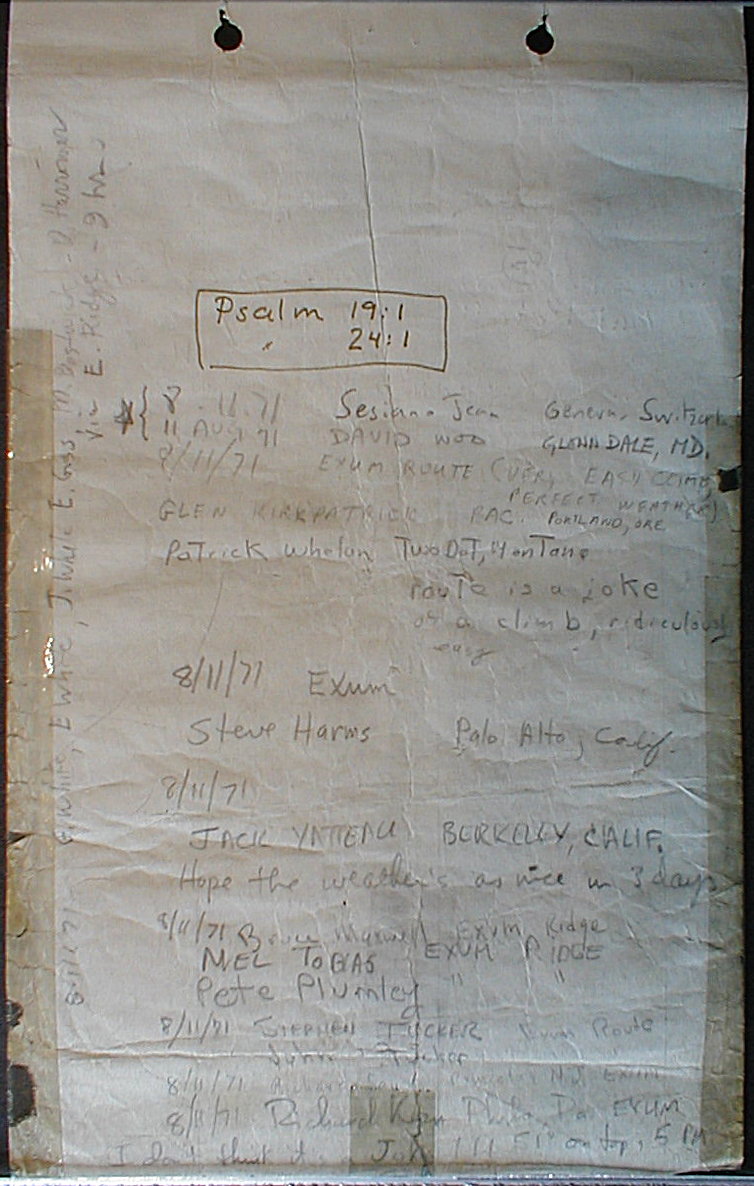 Psalm 19:1
" 24:1
8.11.71 Jean Geneva, Switzerl
11 AUG 71 DAVID WOO GLENN DALE, MD.
8/11/71 EXUM ROUTE (VERY EASY CLIMB,
PERFECT WEATHER)
GLEN KIRKPATRICK PORTLAND, ORE
Patrick Whelan Two Dot, Montana
route is a joke
of a climb, ridiculously
easy
8/11/71 Exum
Steve Harms Palo Alto, Calif.
8/11/71
JACK BERKELEY, CALIF.
Hope the weather's as nice in 3 days
8/11/71 Bruce Maxwell Exum Ridge
MEL TOBIAS EXUM RIDGE
Pete Plumley " "
8/11/71 STEPHEN TUCKER Exum Route
Tucker
8/11/71 Richard N.J. EXUM
8/11/71 Richard Phila, Pa. EXUM
I don't think it's a Joke !!! 51° on top, 5 PM
8/11/71 - White, E White, J. White, E. Goss, M. - D. Harriman
Via E. Ridge - 9 hrs.